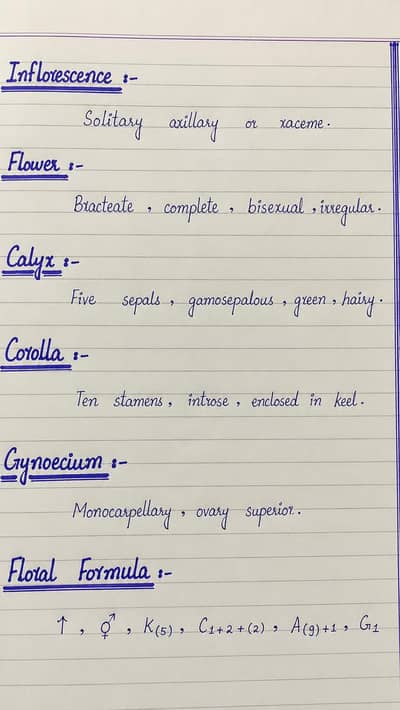 Inflorescence :-
Solitary axillary or raceme.
Flower :-
Bracteate , complete , bisexual , irregular.
Calyx :-
Five sepals , gamosepalous , green , hairy.
Corolla :-
Ten stamens , introse , enclosed in keel.
Gynoecium :-
Monocarpellary , ovary superior.
Floral Formula :-
↑ , ⚥ , K(5) , C1+2+(2) , A(9)+1 , G1